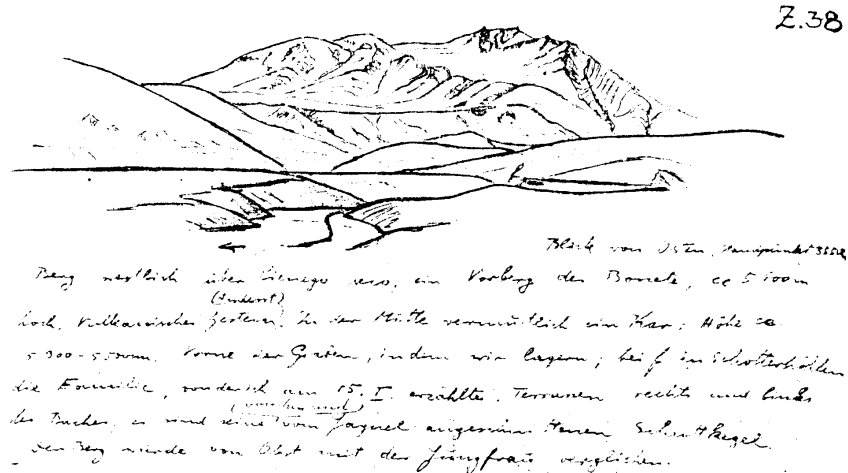 Z.38
Blick von Osten, Standpunkt
Berg westlich über Cienego, ein Vorberg des Bonete, ca 5 100m
hoch, Vulkanisches. In der Mitte vermutlich ein Kar; Höhe ca
5 300-5500m. Vorne der Graben, in dem wir lagern; bei f in Schotterhöhlen
die Familie, von der ich am 15. I. erzählte. Terrassen rechts und links
des Baches, es sind vom angeschnittenen Schuttkegel.
Der Berg wurde von Obst mit der Jungfrau verglichen.